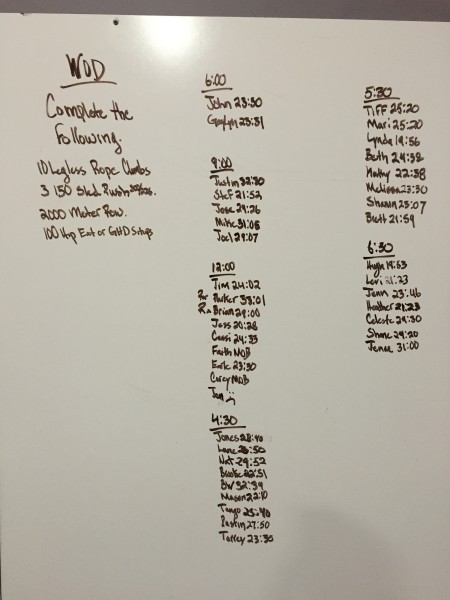 WOD
Complete the
Following.
10 Legless Rope Climbs
3 150 Sled Push
2000 Meter Row.
100 Hip Ext or GHD Situps
6:00
John 23:30
Gaylyn 23:31
9:00
Justin 32:30
Stef 21:52
Jose 29:26
Mike 31:05
Joel 29:07
12:00
Tim 24:02
Rx Parker 33:01
Rx Brian 29:00
Jess 20:28
Cassi 24:33
Faith MOB
Earle 23:30
Corey MOB
Jen
4:30
Jones 28:40
Lane 28:50
Nat 29:52
Brooke 22:51
BW 32:39
Mason 22:10
Tango 25:40
Dustin 27:50
Torrey 23:35
5:30
Tiff 25:20
Mari 25:20
Lynda 19:56
Beth 24:38
Kathy 22:38
Melissa 23:30
Shannon 25:07
Brett 21:59
6:30
Hugh 19:53
Levi 21:23
Jenn 23:46
Heather 21:23
Celeste 29:30
Shane 29:20
Jenae 31:00